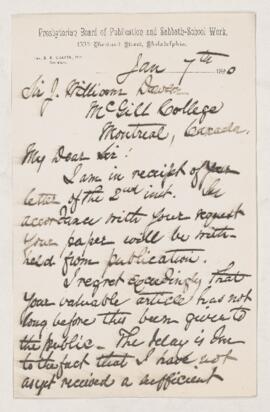 Presbyterian Board of Publication and Sabbath-School Work,
1334 Chestnut Street, Philadelphia.
Jan 7th 1890
Sir J. William Dawson
McGill College
Montreal, Canada.
My Dear Sir:
I am in receipt of your
letter of the 2nd inst. In
accordance with your request
your paper will be with-
held from publication.
I regret exceedingly that
your valuable article has not
long before this been given to
the public. The delay is due
to the fact that I have not
as yet received a sufficient